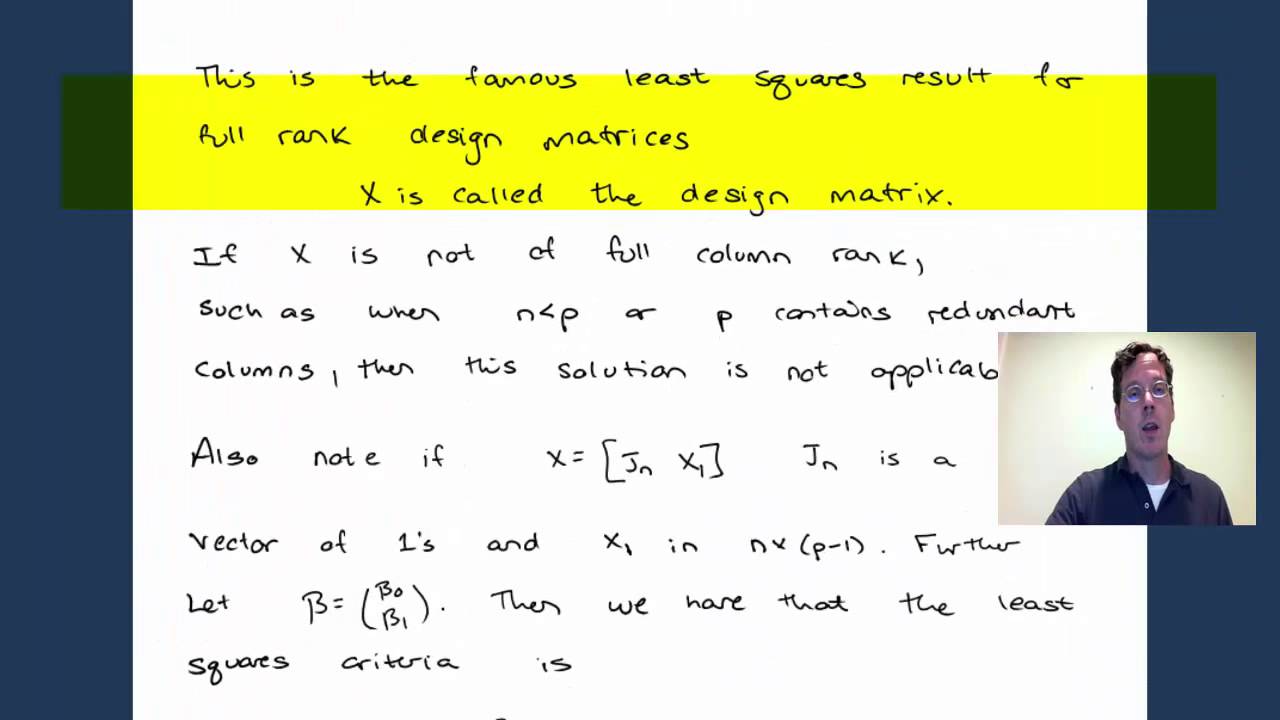 This is the famous least squares result for
full rank design matrices
X is called the design matrix.
If X is not of full column rank,
such as when n<p or p contains redundant
columns, then this solution is not applicab
Also note if X = [Jn X₁] Jn is a
vector of 1's and X₁ in n×(p-1). Further
Let β = (β₀ β₁). Then we have that the least
squares criteria is